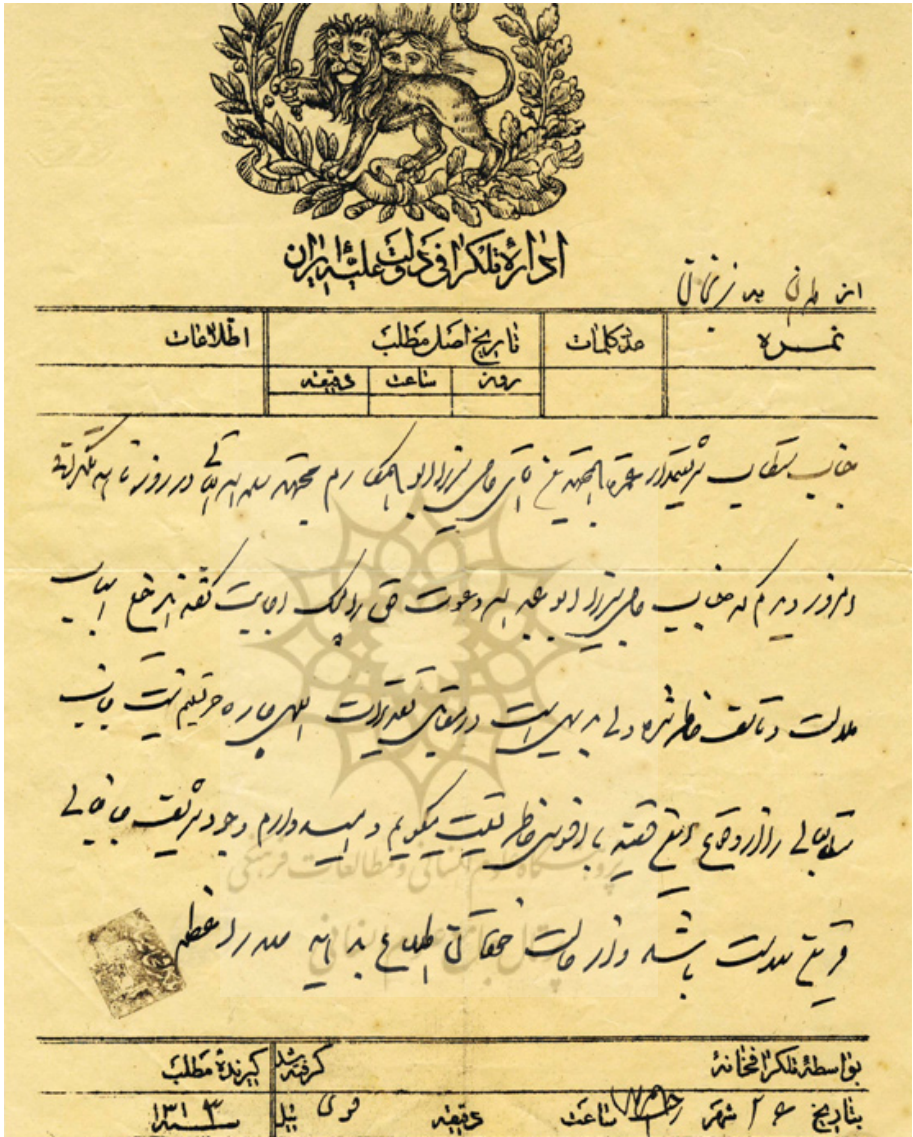 ادارهٔ تلگرافی دولت علیهٔ ایران
از طهران به زنجان
نمره عدد کلمات تاریخ اصل مطلب اطلاعات
روز ساعت دقیقه
جناب مستطاب شریعتمدار عمدة المجتهدین آقای حاجی میرزا ابوالمکارم مجتهد سلمه الله تعالی در روزنامه تلگرافی
امروز دیدم که جناب حاجی میرزا ابو عبدالله دعوت حق را لبیک اجابت گفته اند خیلی اسباب
ملالت و تاسف خاطر شده ولی بدیهی است در مقابل تقدیرات الهی چاره جز تسلیم نیست جناب
مستطابعالی را از وقوع این قضیه با افسوس خاطر تسلیت میگویم و امیدوارم وجود شریف جنابعالی
قرین سلامت باشد و از حالت خودتان اطلاع بدهید صدر اعظم
پژوهشگاه علوم انسانی و مطالعات فرهنگی
پرتال جامع علوم انسانی
بواسطهٔ تلگرافخانهٔ گرفته شد گیرندهٔ مطلب
بتاریخ شهر ساعت دقیقه قوی ئیل سنه ۱۳۱۳